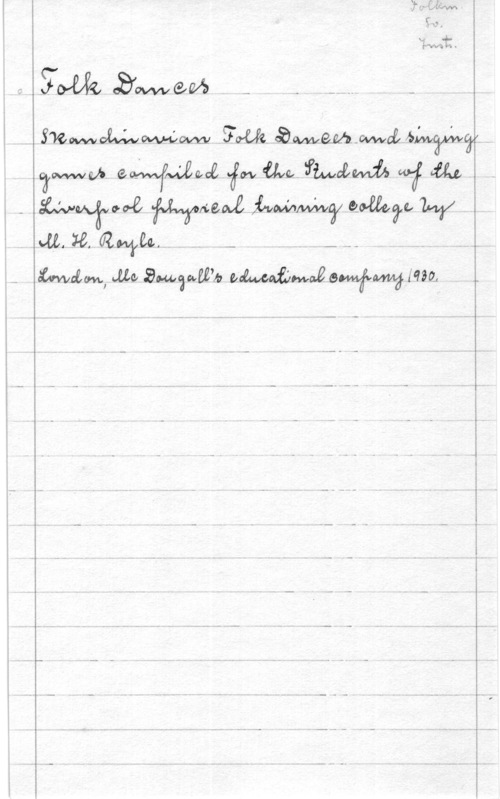 Folkm
So.
Inst.
Folk Dances
Skandinavian Folk Dances and singing
games compiled for the Students of the
Liverpool physical training college by
M. H. Royle.
London, Mc Dougall's educational company 1930.